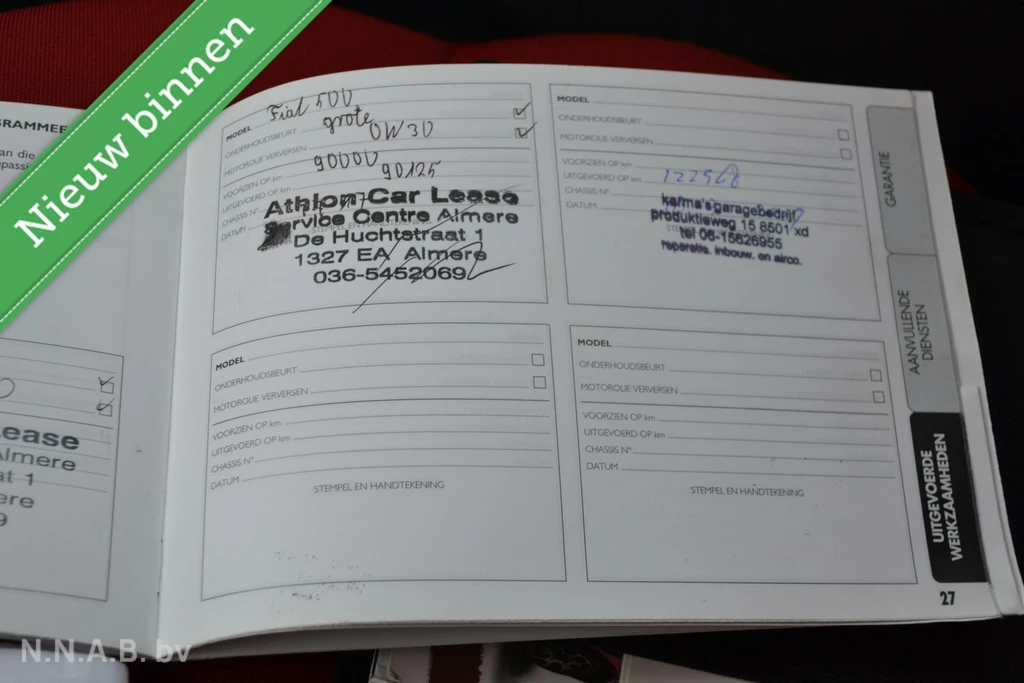 Nieuw binnen
GRAMMEE
an die
epassi
ease
Almere
at 1
ere
9
MODEL Fiat 500
ONDERHOUDSBEURT grote
MOTOROLIE VERVERSEN 0W30
VOORZIEN OP km 90000
UITGEVOERD OP km 90125
CHASSIS N°
DATUM
Athlon Car Lease
Service Centre Almere
De Huchtstraat 1
1327 EA Almere
036-5452069
MODEL
ONDERHOUDSBEURT
MOTOROLIE VERVERSEN
VOORZIEN OP km
UITGEVOERD OP km 122568
CHASSIS N°
DATUM
karma's garagebedrijf
produktieweg 15 8501 xd
tel 06-15626955
reparatie. inbouw. en airco.
MODEL
ONDERHOUDSBEURT
MOTOROLIE VERVERSEN
VOORZIEN OP km
UITGEVOERD OP km
CHASSIS N°
DATUM
STEMPEL EN HANDTEKENING
MODEL
ONDERHOUDSBEURT
MOTOROLIE VERVERSEN
VOORZIEN OP km
UITGEVOERD OP km
CHASSIS N°
DATUM
STEMPEL EN HANDTEKENING
GARANTIE
AANVULLENDE
DIENSTEN
UITGEVOERDE
WERKZAAMHEDEN
27
N.N.A.B. bv